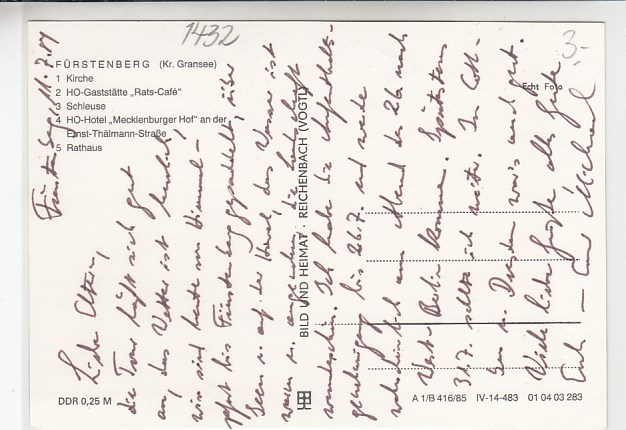 1432
3.-
FÜRSTENBERG (Kr. Gransee)
1 Kirche
2 HO-Gaststätte „Rats-Café"
3 Schleuse
4 HO-Hotel „Mecklenburger Hof" an der
Ernst-Thälmann-Straße
5 Rathaus
Echt Foto
BILD UND HEIMAT · REICHENBACH (VOGTL)
DDR 0,25 M
A 1/B 416/85 IV-14-483 01 04 03 283
Fürstenberg, 11.7.
Liebe Eltern,
die Tour läßt sich gut
an, das Wetter ist herrlich,
wir sind heute von Himmel-
pfort bis Fürstenberg gepaddelt, über
Seen u. auf der Havel, das Wasser ist
warm u. angenehm, die Landschaft
wunderschön. Ich habe die Aufenthalts-
genehmigung bis 26.7. und werde
wahrscheinlich am Abend des 26. nach
West-Berlin kommen. Spätestens
31.7. melde ich mich. In Cott-
bus u. Dresden war's auch gut.
Viele liebe Grüße, alles Gute
Euch — Euer Michael